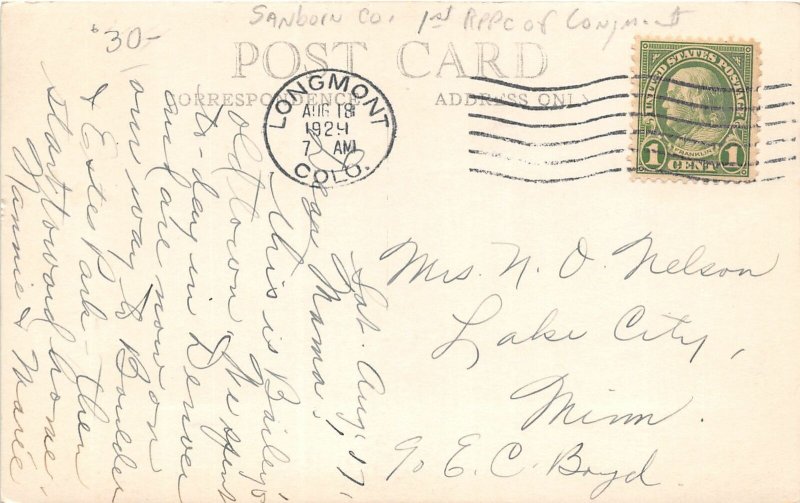 $30-
Sanborn Co. 1st RPPC of Longmont
POST CARD
CORRESPONDENCE
ADDRESS ONLY
LONGMONT
AUG 18
1929
7 AM
COLO.
UNITED STATES POSTAGE
FRANKLIN
1 CENT 1
Sat. Aug. 17,
Dear Mama,
This is Bailey's
old town. We spent
to-day in Denver
and are now on
our way to Boulder
& Estes Park - then
start toward home.
Nannie & Marie
Mrs. N. O. Nelson
Lake City,
Minn.
c/o E. C. Boyd.